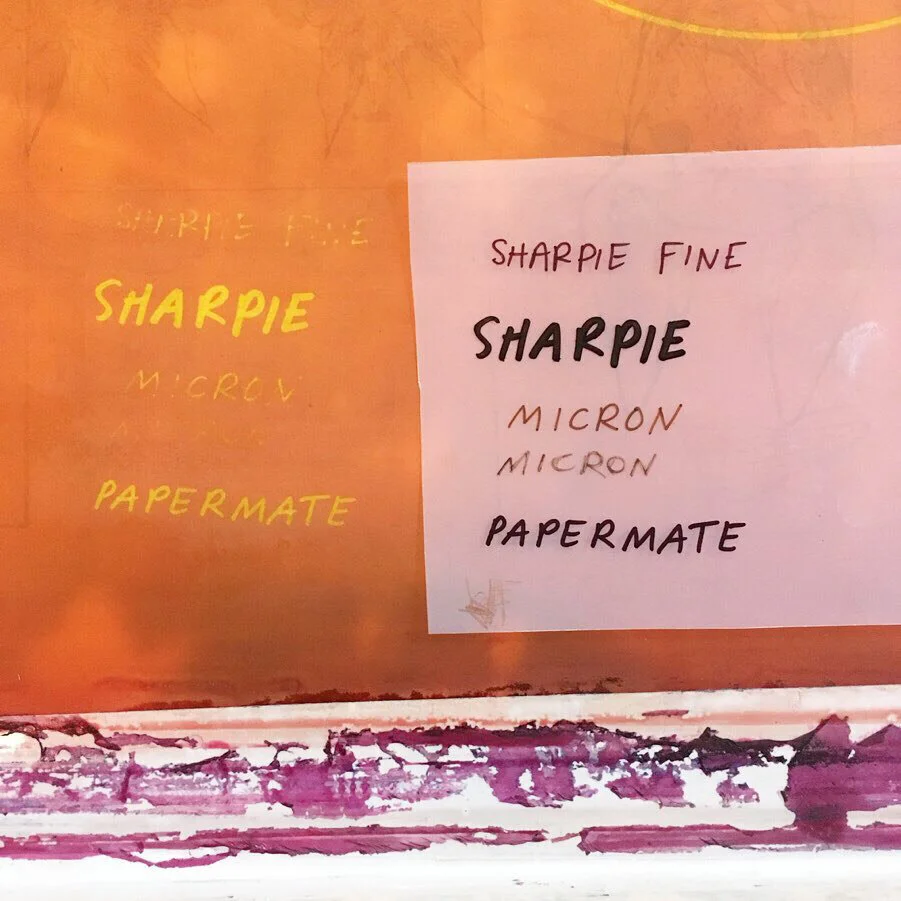 SHARPIE FINE
SHARPIE
MICRON
PAPERMATE
SHARPIE FINE
SHARPIE
MICRON
MICRON
PAPERMATE